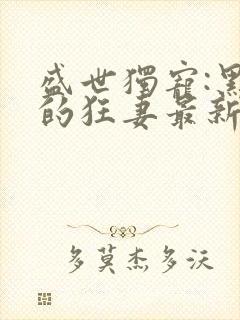 盛世獨寵:黑
的狂妻最新
多莫杰多沃